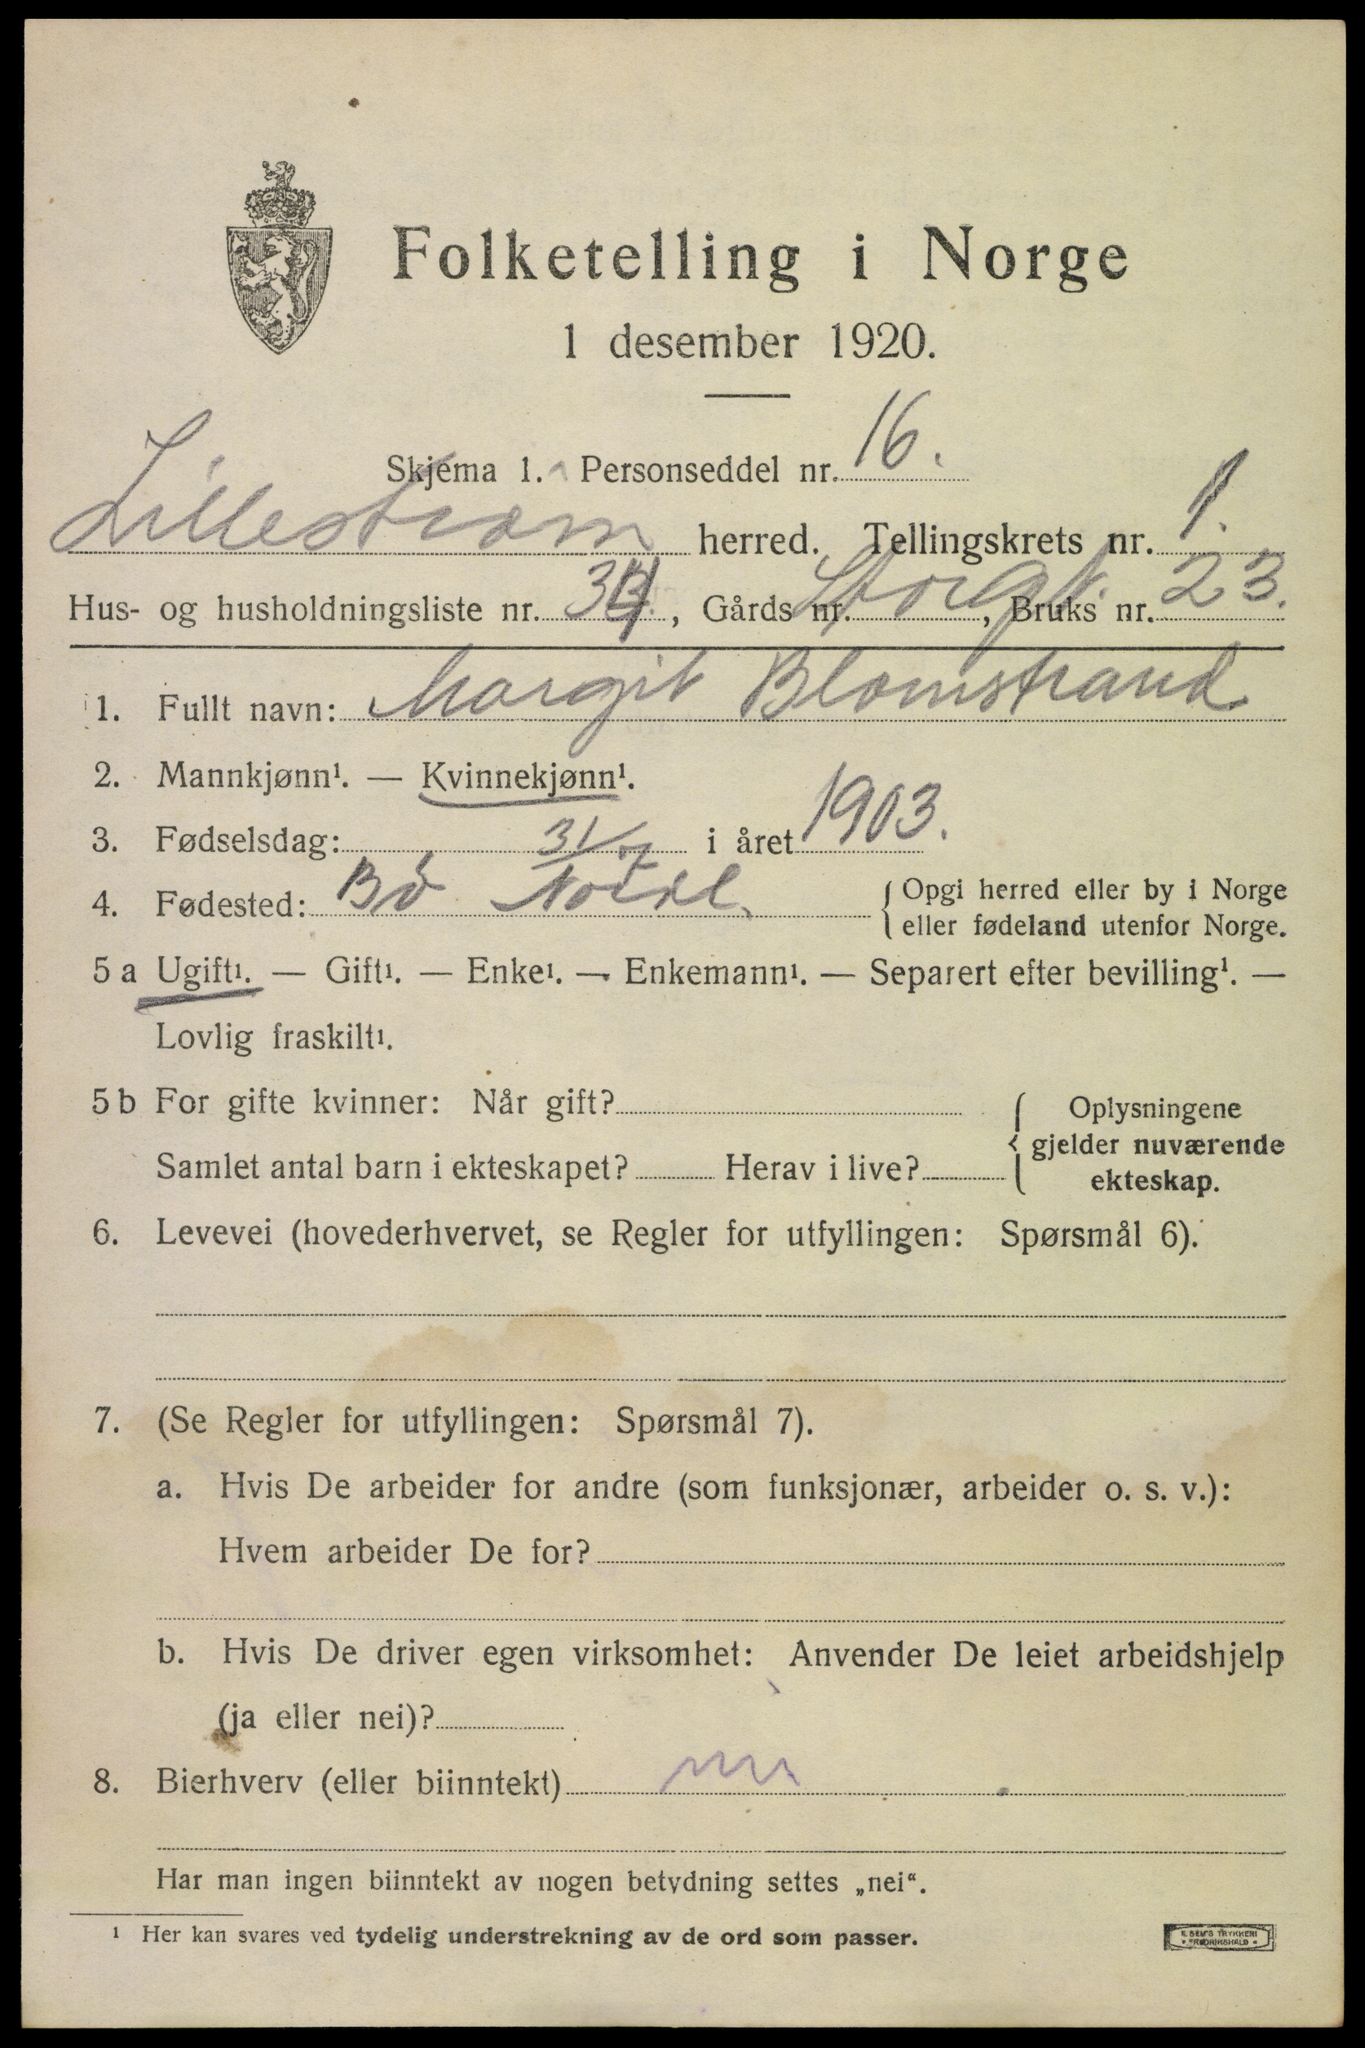 Folketelling i Norge
1 desember 1920.
Skjema 1. Personseddel nr. 16.
Lillestrøm herred. Tellingskrets nr. 1.
Hus- og husholdningsliste nr. 34, Gårds nr. Storgt., Bruks nr. 23.
1. Fullt navn: Margit Blomstrand
2. Mannkjønn¹. — Kvinnekjønn¹.
3. Fødselsdag: 31/7 i året 1903.
4. Fødested: Bø {Opgi herred eller by i Norge
eller fødeland utenfor Norge.
5 a Ugift¹. — Gift¹. — Enke¹. — Enkemann¹. — Separert efter bevilling¹. —
Lovlig fraskilt¹.
5 b For gifte kvinner: Når gift? { Oplysningene
gjelder nuværende
Samlet antal barn i ekteskapet? Herav i live?
ekteskap.
6. Levevei (hovederhvervet, se Regler for utfyllingen: Spørsmål 6).
7. (Se Regler for utfyllingen: Spørsmål 7).
a. Hvis De arbeider for andre (som funksjonær, arbeider o. s. v.):
Hvem arbeider De for?
b. Hvis De driver egen virksomhet: Anvender De leiet arbeidshjelp
(ja eller nei)?
8. Bierhverv (eller biinntekt) nei
Har man ingen biinntekt av nogen betydning settes „nei“.
¹ Her kan svares ved tydelig understrekning av de ord som passer.
E. SEM'S TRYKKERI
FREDRIKSHALD